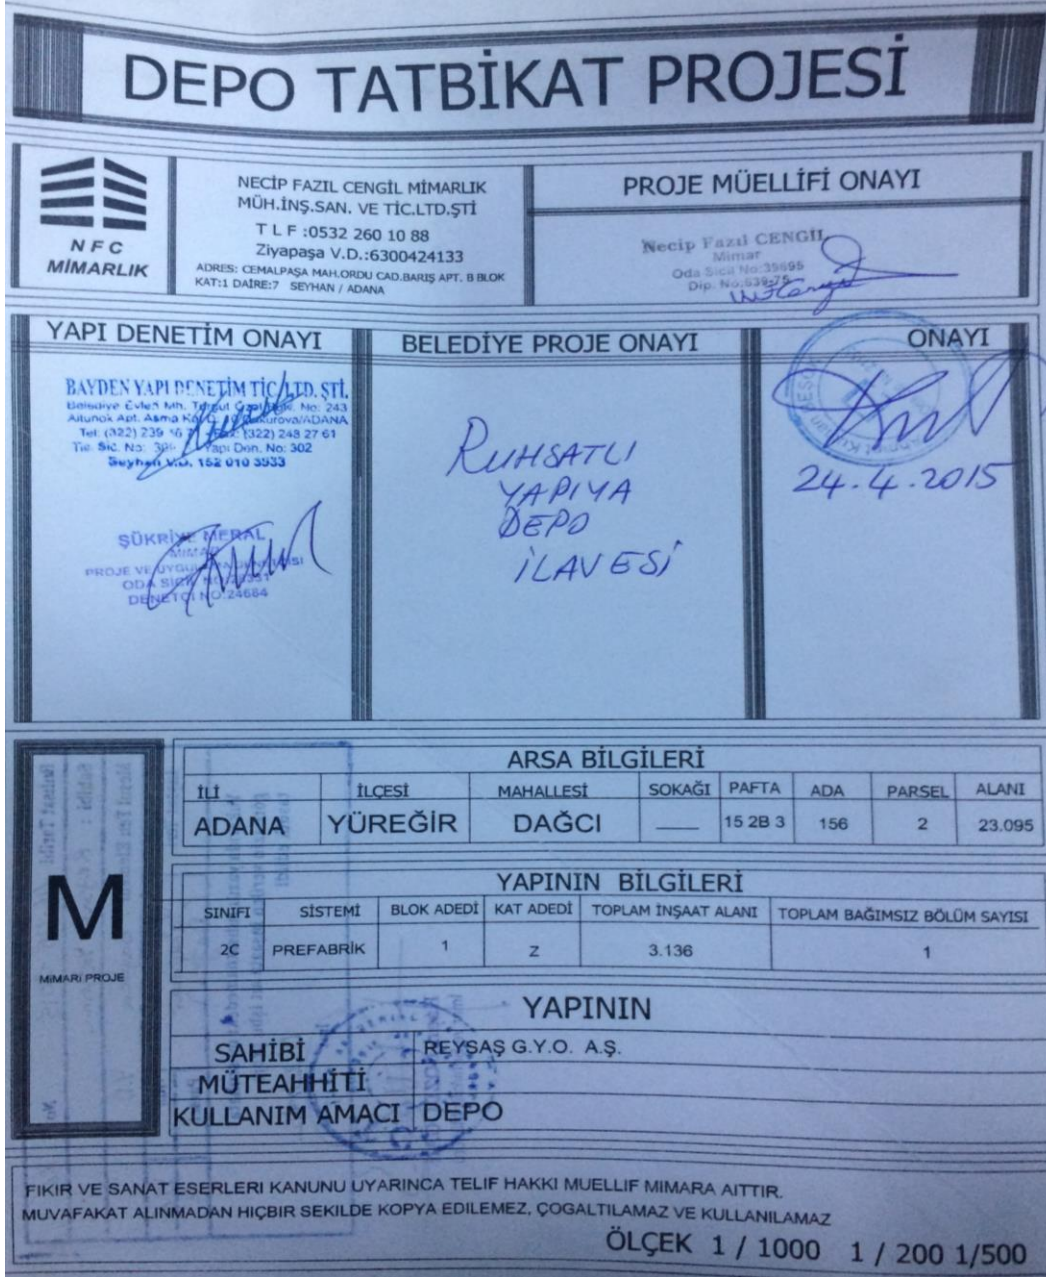 DEPO TATBİKAT PROJESİ
NFC
MİMARLIK
NECİP FAZIL CENGİL MİMARLIK
MÜH.İNŞ.SAN. VE TİC.LTD.ŞTİ
T L F :0532 260 10 88
Ziyapaşa V.D.:6300424133
ADRES: CEMALPAŞA MAH.ORDU CAD.BARIŞ APT. B BLOK
KAT:1 DAİRE:7 SEYHAN / ADANA
PROJE MÜELLİFİ ONAYI
Necip Fazıl CENGİL
Mimar
Oda Sicil No:39695
Dip. No:639-75
YAPI DENETİM ONAYI
BAYDEN YAPI DENETİM TİC.LTD. ŞTİ.
Belediye Evleri Mh. No: 243
Altunok Apt. Asma
Tel: (322) 239 (322) 248 27 61
Tic. Sic. No: Yapı Den. No: 302
Seyhan V.D. 152 010 3933
ŞÜKRİYE MERAL
MİMAR
PROJE VE
ODA SİCİL
DENETÇİ NO:24664
BELEDİYE PROJE ONAYI
RUHSATLI
YAPIYA
DEPO
İLAVESİ
ONAYI
24.4.2015
M
MİMARİ PROJE
ARSA BİLGİLERİ
İLİ İLÇESİ MAHALLESİ SOKAĞI PAFTA ADA PARSEL ALANI
ADANA YÜREĞİR DAĞCI — 15 2B 3 156 2 23.095
YAPININ BİLGİLERİ
SINIFI SİSTEMİ BLOK ADEDİ KAT ADEDİ TOPLAM İNŞAAT ALANI TOPLAM BAĞIMSIZ BÖLÜM SAYISI
2C PREFABRİK 1 Z 3.136 1
YAPININ
SAHİBİ REYSAŞ G.Y.O. A.Ş.
MÜTEAHHİTİ
KULLANIM AMACI DEPO
FIKIR VE SANAT ESERLERI KANUNU UYARINCA TELIF HAKKI MUELLIF MIMARA AITTIR.
MUVAFAKAT ALINMADAN HIÇBIR SEKILDE KOPYA EDILEMEZ, ÇOGALTILAMAZ VE KULLANILAMAZ
ÖLÇEK 1 / 1000 1 / 200 1/500